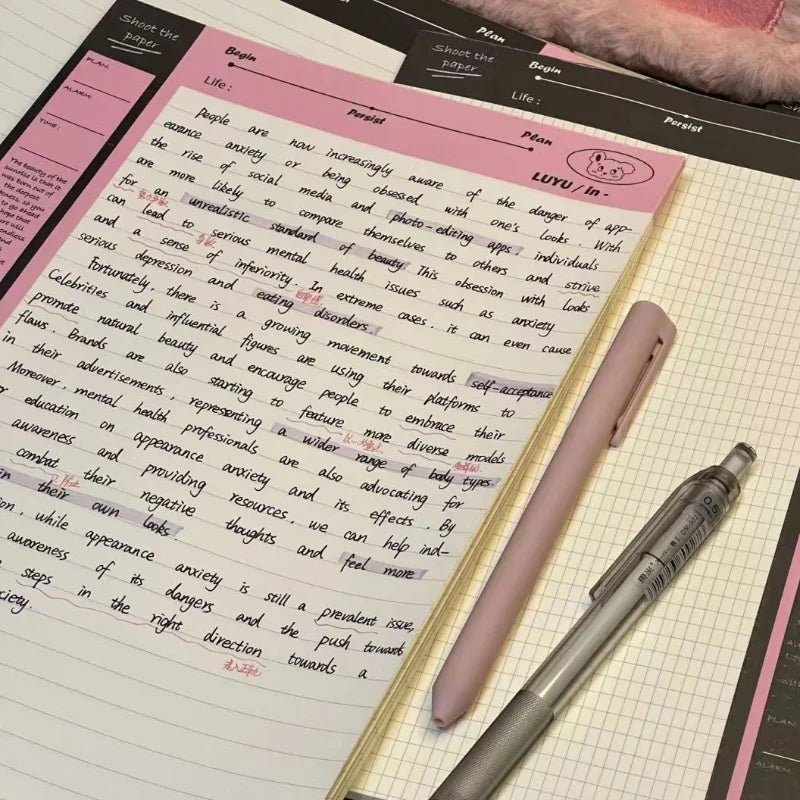 Shoot the
paper
PLAN:
ALARM:
TIME:
The beauty of the
sunrise is that it
was born out of
the deepest
Begin
Persist
Plan
Life:
LUYU / In -
People are now increasingly aware of the danger of app-
earance anxiety or being obsessed with one's looks. With
the rise of social media and photo-editing apps, individuals
are more likely to compare themselves to others and strive
for an unrealistic standard of beauty. This obsession with looks
can lead to serious mental health issues such as anxiety
and a sense of inferiority. In extreme cases, it can even cause
serious depression and eating disorders.
Fortunately, there is a growing movement towards self-acceptance
Celebrities and influential figures are using their platforms to
promote natural beauty and encourage people to embrace their
flaws. Brands are also starting to feature more diverse models
in their advertisements, representing a wider range of body types.
Moreover, mental health professionals are also advocating for
education on appearance anxiety and its effects. By
awareness and providing resources, we can help ind-
combat their negative thoughts and feel more
in their own looks
while appearance anxiety is still a prevalent issue,
awareness of its dangers and the push towards
steps in the right direction towards a
自卑感
走入正轨
Shoot the
paper
Begin
Persist
Life:
Plan
0.5
PLAN:
ALARM: